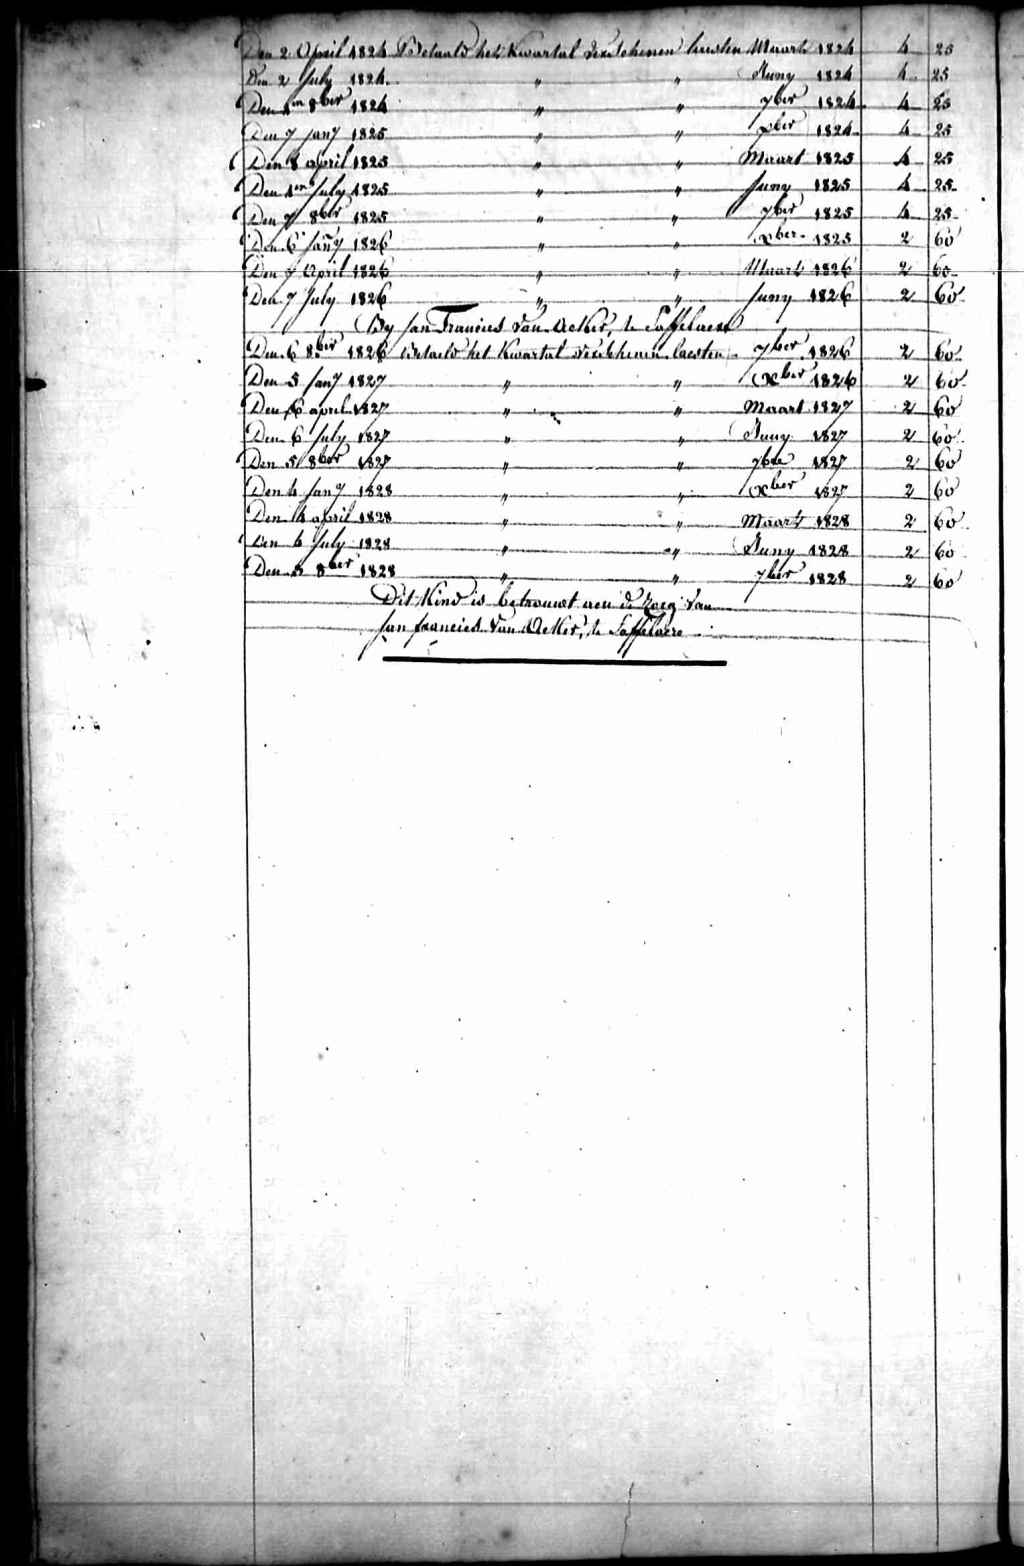 Den 2 April 1824 Betaald het Kwartal verschenen laesten Maart 1824 4 25
Den 2 July 1824 " " Juny 1824 4 25
Den 1en 8ber 1824 " " 7ber 1824 4 25
Den 7 Jany 1825 " " xber 1824 4 25
Den 8 april 1825 " " Maart 1825 4 25
Den 1en July 1825 " " Juny 1825 4 25
Den 7 8ber 1825 " " 7ber 1825 4 25
Den 6 Jany 1826 " " xber 1825 2 60
Den 7 April 1826 " " Maart 1826 2 60
Den 7 July 1826 " " Juny 1826 2 60
By Jan Francies Van Acker, te Saffelaere
Den 6 8ber 1826 betaeld het Kwartal verschenen laesten 7ber 1826 2 60
Den 5 Jany 1827 " " xber 1826 2 60
Den 6 april 1827 " " Maart 1827 2 60
Den 6 July 1827 " " Juny 1827 2 60
Den 5 8ber 1827 " " 7bre 1827 2 60
Den 4 Jany 1828 " " xber 1827 2 60
Den 4 april 1828 " " Maart 1828 2 60
Den 4 July 1828 " " Juny 1828 2 60
Den 3 8ber 1828 " " 7ber 1828 2 60
Dit Kind is betrouwt aen de zorg van
Jan francies Van Acker, te Saffelaere